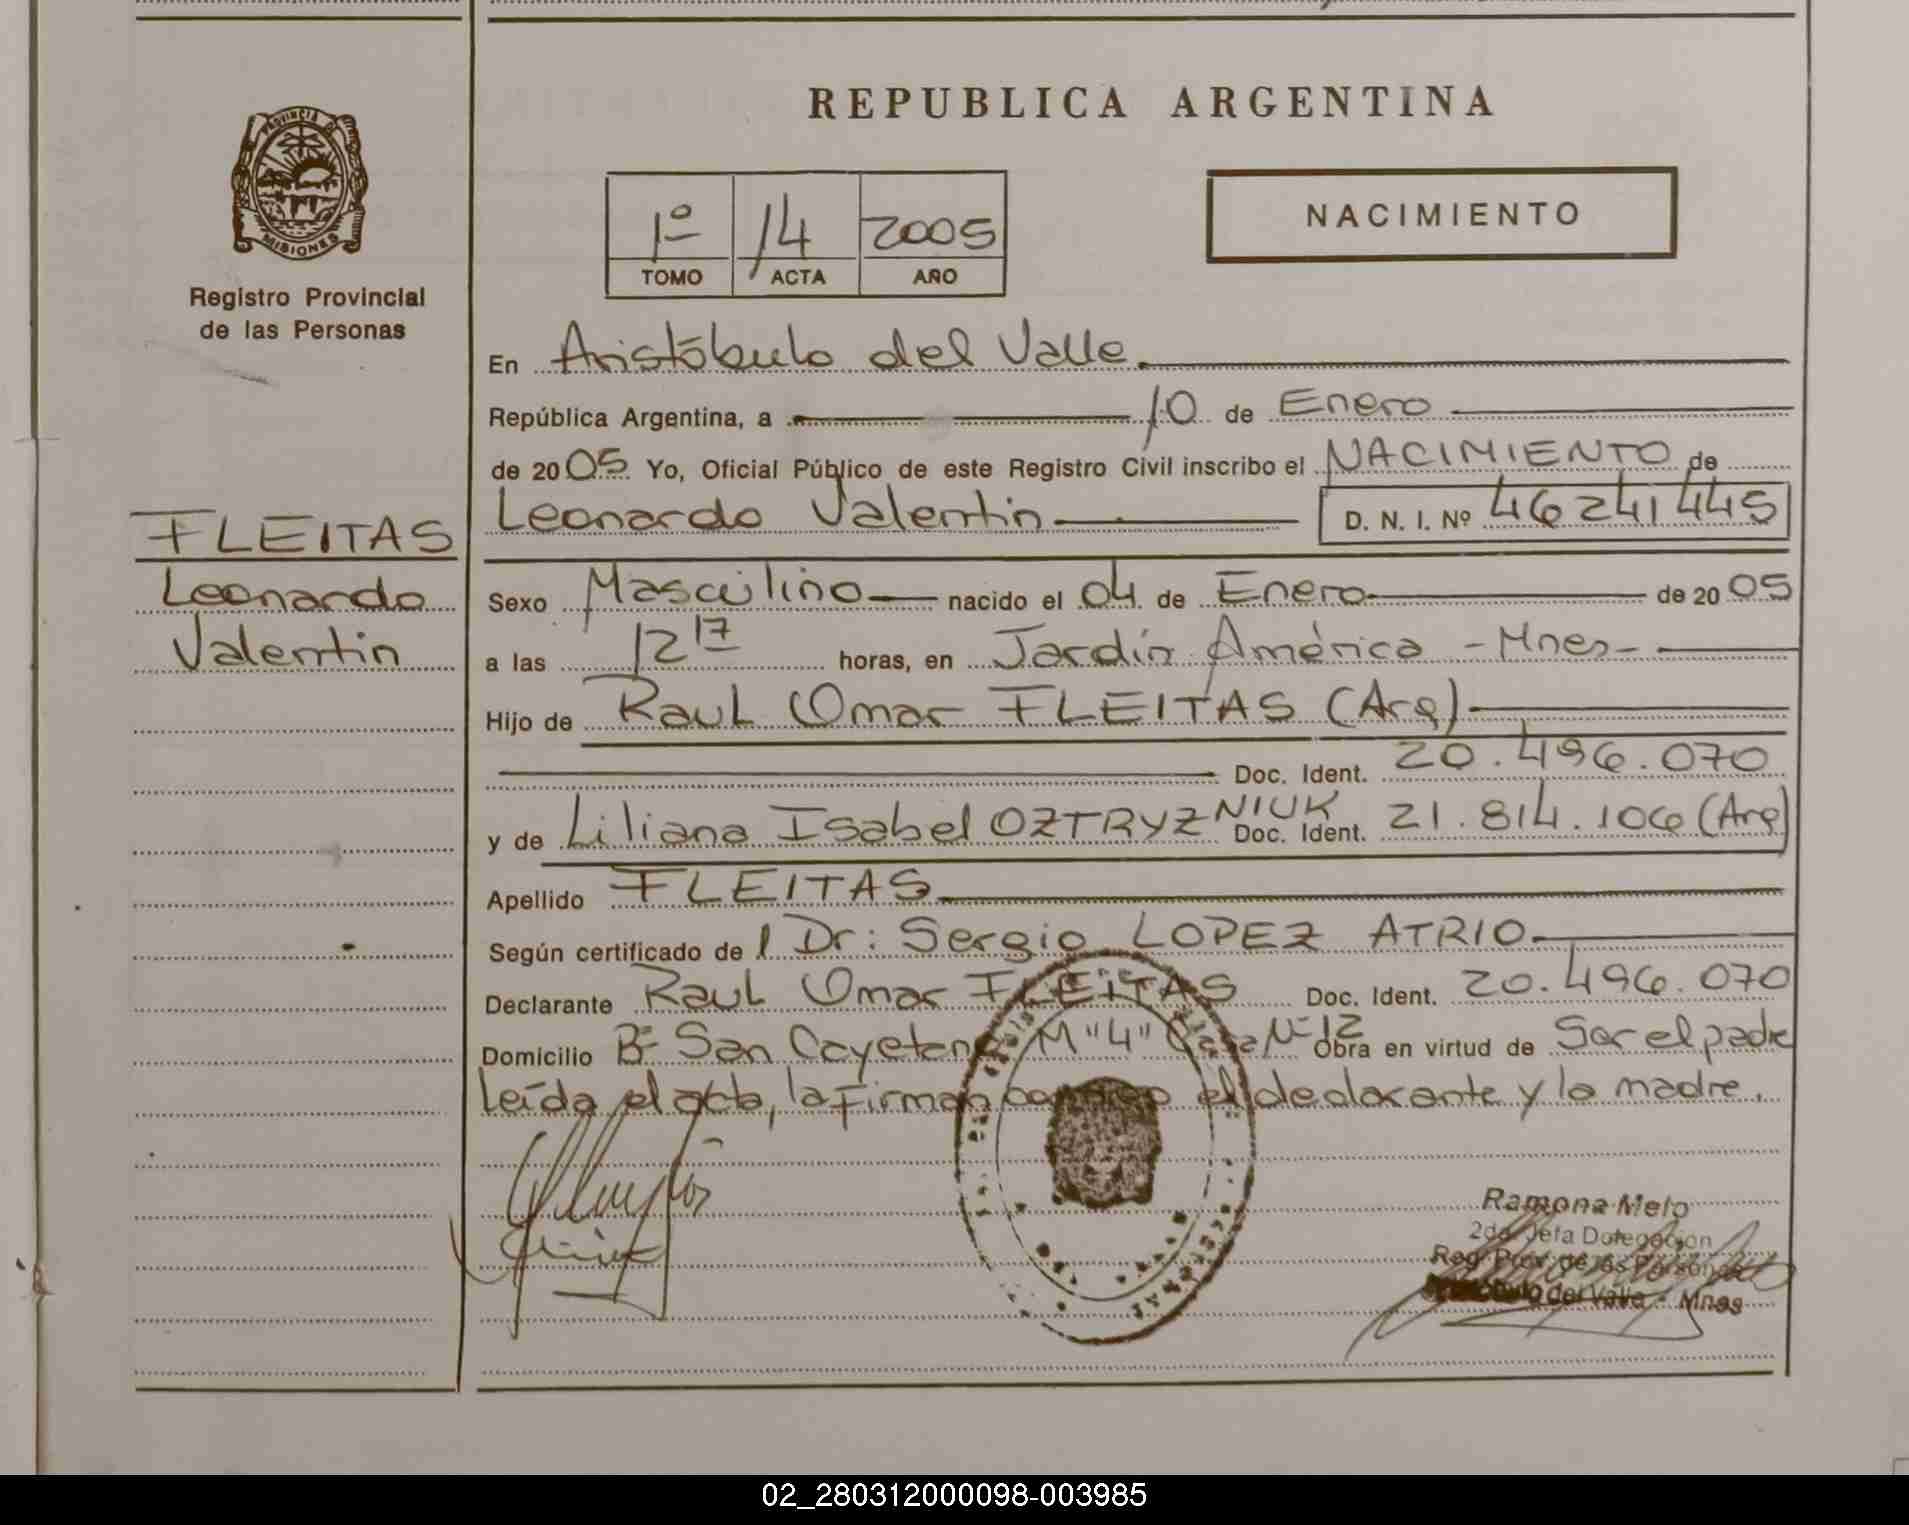 REPUBLICA ARGENTINA
PROVINCIA DE
MISIONES
Registro Provincial
de las Personas
1º 14 2005
TOMO ACTA AÑO
NACIMIENTO
En Aristóbulo del Valle
República Argentina, a 10 de Enero
de 2005 Yo, Oficial Público de este Registro Civil inscribo el NACIMIENTO de
Leonardo Valentin D. N. I. Nº 46241445
FLEITAS
Leonardo
Valentin
Sexo Masculino nacido el 04 de Enero de 2005
a las 12 17 horas, en Jardín América - Mnes -
Hijo de Raul Omar FLEITAS (Arg)
Doc. Ident. 20.496.070
y de Liliana Isabel OZTRYZNIUK Doc. Ident. 21.814.106 (Arg)
Apellido FLEITAS
Según certificado de l Dr: Sergio LOPEZ ATRIO
Declarante Raul Omar FLEITAS Doc. Ident. 20.496.070
Domicilio Bº San Cayetano M "4" Casa Nº 12 Obra en virtud de Ser el padre
Leída el acta, la firman conmigo el declarante y la madre.
Ramona Melo
2da. Jefa Delegación
Reg. Prov. de las Personas
Aristóbulo del Valle - Mnes
02_280312000098-003985